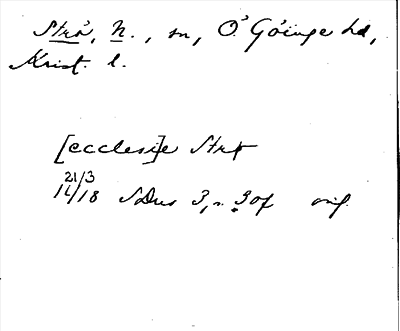 Strö, N., sn, Ö Göinge hd,
Krist. l.
[ecclesi]e Strø
21/3
14/18 SDns 3, s. 30f orig.